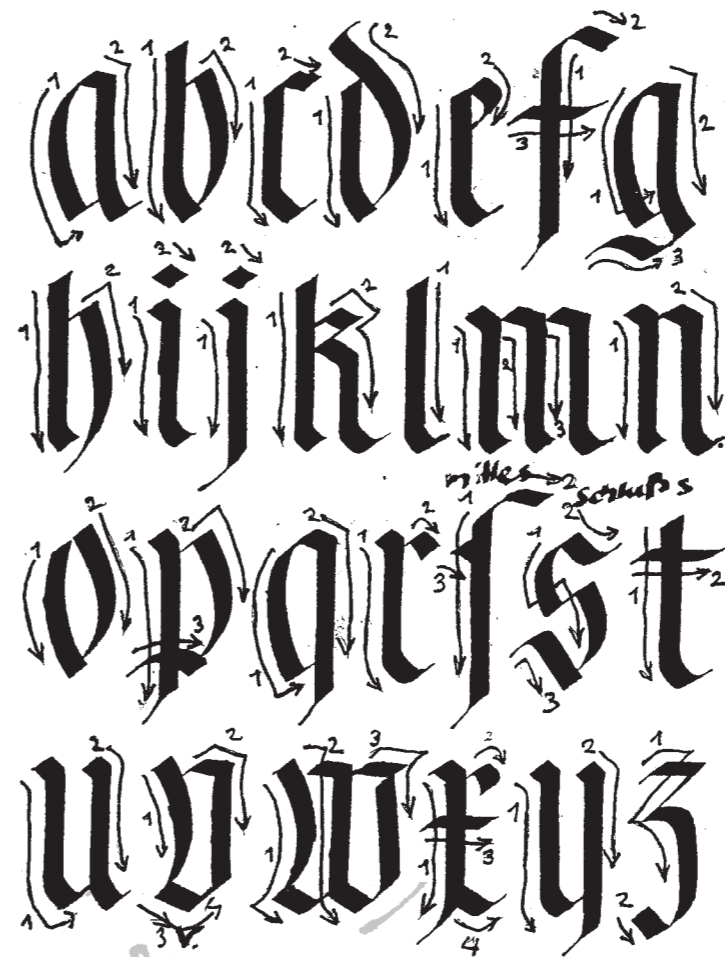 a b c d e f g
h i j k l m n
mittles Schluß s
o p q r ſ s t
u v w x y z